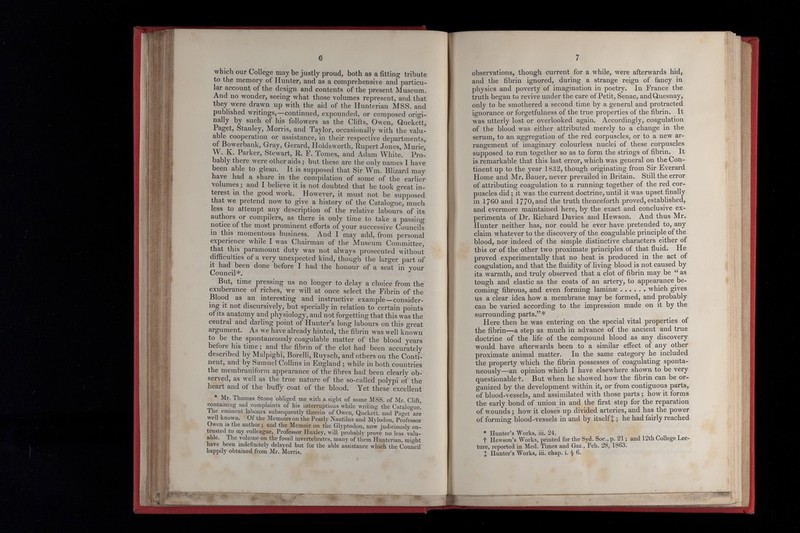 6
which our College may be justly proud, both as a fitting tribute
to the memory of Hunter, and as a comprehensive and particu-
lar account of the design and contents of the present Museum.
And no wonder, seeing what those volumes represent, and that
they were drawn up with the aid of the Hunterian MSS. and
published writings,—continued, expounded, or composed origi-
nally by such of his followers as the Clifts, Owen, Quekett,
Paget, Stanley, Morris, and Taylor, occasionally with the valu-
able cooperation or assistance, in their respective departments,
of Bowerbank, Gray, Gerard, Holdsworth, Rupert Jones, Murie,
W. K. Parker, Stewart, R. F. Tomes, and Adam White. Pro-
bably there were other aids; but these are the only names I have
been able to glean. It is supposed that Sir Wm. Blizard may
have had a share in the compilation of some of the earlier
volumes; and I believe it is not doubted that he took great in-
terest in the good work. However, it must not be supposed
that we pretend now to give a history of the Catalogue, much
less to attempt any description of the relative labours of its
authors or compilers, as there is only time to take a passing
notice of the most prominent efforts of your successive Councils
in this momentous business. And I may add, from personal
experience while I was Chairman of the Museum Committee,
that this paramount duty was not always prosecuted without
difficulties of a very unexpected kind, though the larger part of
it had been done before I had the honour of a seat in your
Council*.
But, time pressing us no longer to delay a choice from the
exuberance of riches, we will at once select the Fibrin of the
Blood as an interesting and instructive example—consider-
ing it not discursively, but specially in relation to certain points
of its anatomy and physiology, and not forgetting that this was the
central and darling point of Hunter's long labours on this great
argument. As we have already hinted, the fibrin was well known
to be the spontaneously coagulable matter of the blood years
before his time; and the fibrin of the clot had been accurately
described by Malpighi, Borelli, Ruysch, and others on the Conti-
nent, and by Samuel Collins in England; while in both countries
the membraniform appearance of the fibres had been clearly ob-
served, as well as the true nature of the so-called polypi of the
heart and of the buffy coat of the blood. Yet these excellent
* Mr. Thomas Stone obliged me with a sight of some MSS. of Mr. Clift,
containing sad complaints of his interruptions while writing the Catalogue.
The eminent labours subsequently therein of Owen, Quekett, and Paget are
well known. Of the Memoirs on the Pearly Nautilus and Mylodon, Professor
Owen is the author; and the Memoir on the Glyptodon, now judiciously en-
trusted to my colleague, Professor Huxley, will probably prove no less valu-
able. The volume on the fossil invertebrates, many of them Hunterian, might
have been indefinitely delayed but for the able assistance which the Council
happily obtained from Mr. Morris.
7
observations, though current for a while, were afterwards hid,
and the fibrin ignored, during a strange reign of fancy in
physics and poverty of imagination in poetry. In France the
truth began to revive under the care of Petit, Senac, and Quesnay,
only to be smothered a second time by a general and protracted
ignorance or forgetfulness of the true properties of the fibrin. It
was utterly lost or overlooked again. Accordingly, coagulation
of the blood was either attributed merely to a change in the
serum, to an aggregation of the red corpuscles, or to a new ar-
rangement of imaginary colourless nuclei of these corpuscles
supposed to run together so as to form the strings of fibrin. It
is remarkable that this last error, which was general on the Con-
tinent up to the year 1832, though originating from Sir Everard
Home and Mr. Bauer, never prevailed in Britain. Still the error
of attributing coagulation to a running together of the red cor-
puscles did; it was the current doctrine, until it was upset finally
in 1760 and 1770, and the truth thenceforth proved, established,
and evermore maintained here, by the exact and conclusive ex-
periments of Dr. Richard Davies and Hewson. And thus Mr.
Hunter neither has, nor could he ever have pretended to, any
claim whatever to the discovery of the coagulable principle of the
blood, nor indeed of the simple distinctive characters either of
this or of the other two proximate principles of that fluid. He
proved experimentally that no heat is produced in the act of
coagulation, and that the fluidity of living blood is not caused by
its warmth, and truly observed that a clot of fibrin may be “as
tough and elastic as the coats of an artery, to appearance be-
coming fibrous, and even forming laminæ . . . . . . which gives
us a clear idea how a membrane may be formed, and probably
can be varied according to the impression made on it by the
surrounding parts.”*
Here then he was entering on the special vital properties of
the fibrin—a step as much in advance of the ancient and true
doctrine of the life of the compound blood as any discovery
would have afterwards been to a similar effect of any other
proximate animal matter. In the same category he included
the property which the fibrin possesses of coagulating sponta-
neously—an opinion which I have elsewhere shown to be very
questionable†. But when he showed how the fibrin can be or-
ganized by the development within it, or from contiguous parts,
of blood-vessels, and assimilated with those parts; how it forms
the early bond of union in and the first step for the reparation
of wounds; how it closes up divided arteries, and has the power
of forming blood-vessels in and by itself‡; he had fairly reached
* Hunter's Works, iii. 24.
† Hewson's Works, printed for the Syd. Soc., p. 21; and 12th College Lec-
ture, reported in Med. Times and Gaz., Feb. 28, 1863.
‡ Hunter's Works, iii. chap. i. § 6.